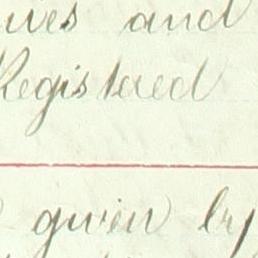 and
Registered
given by